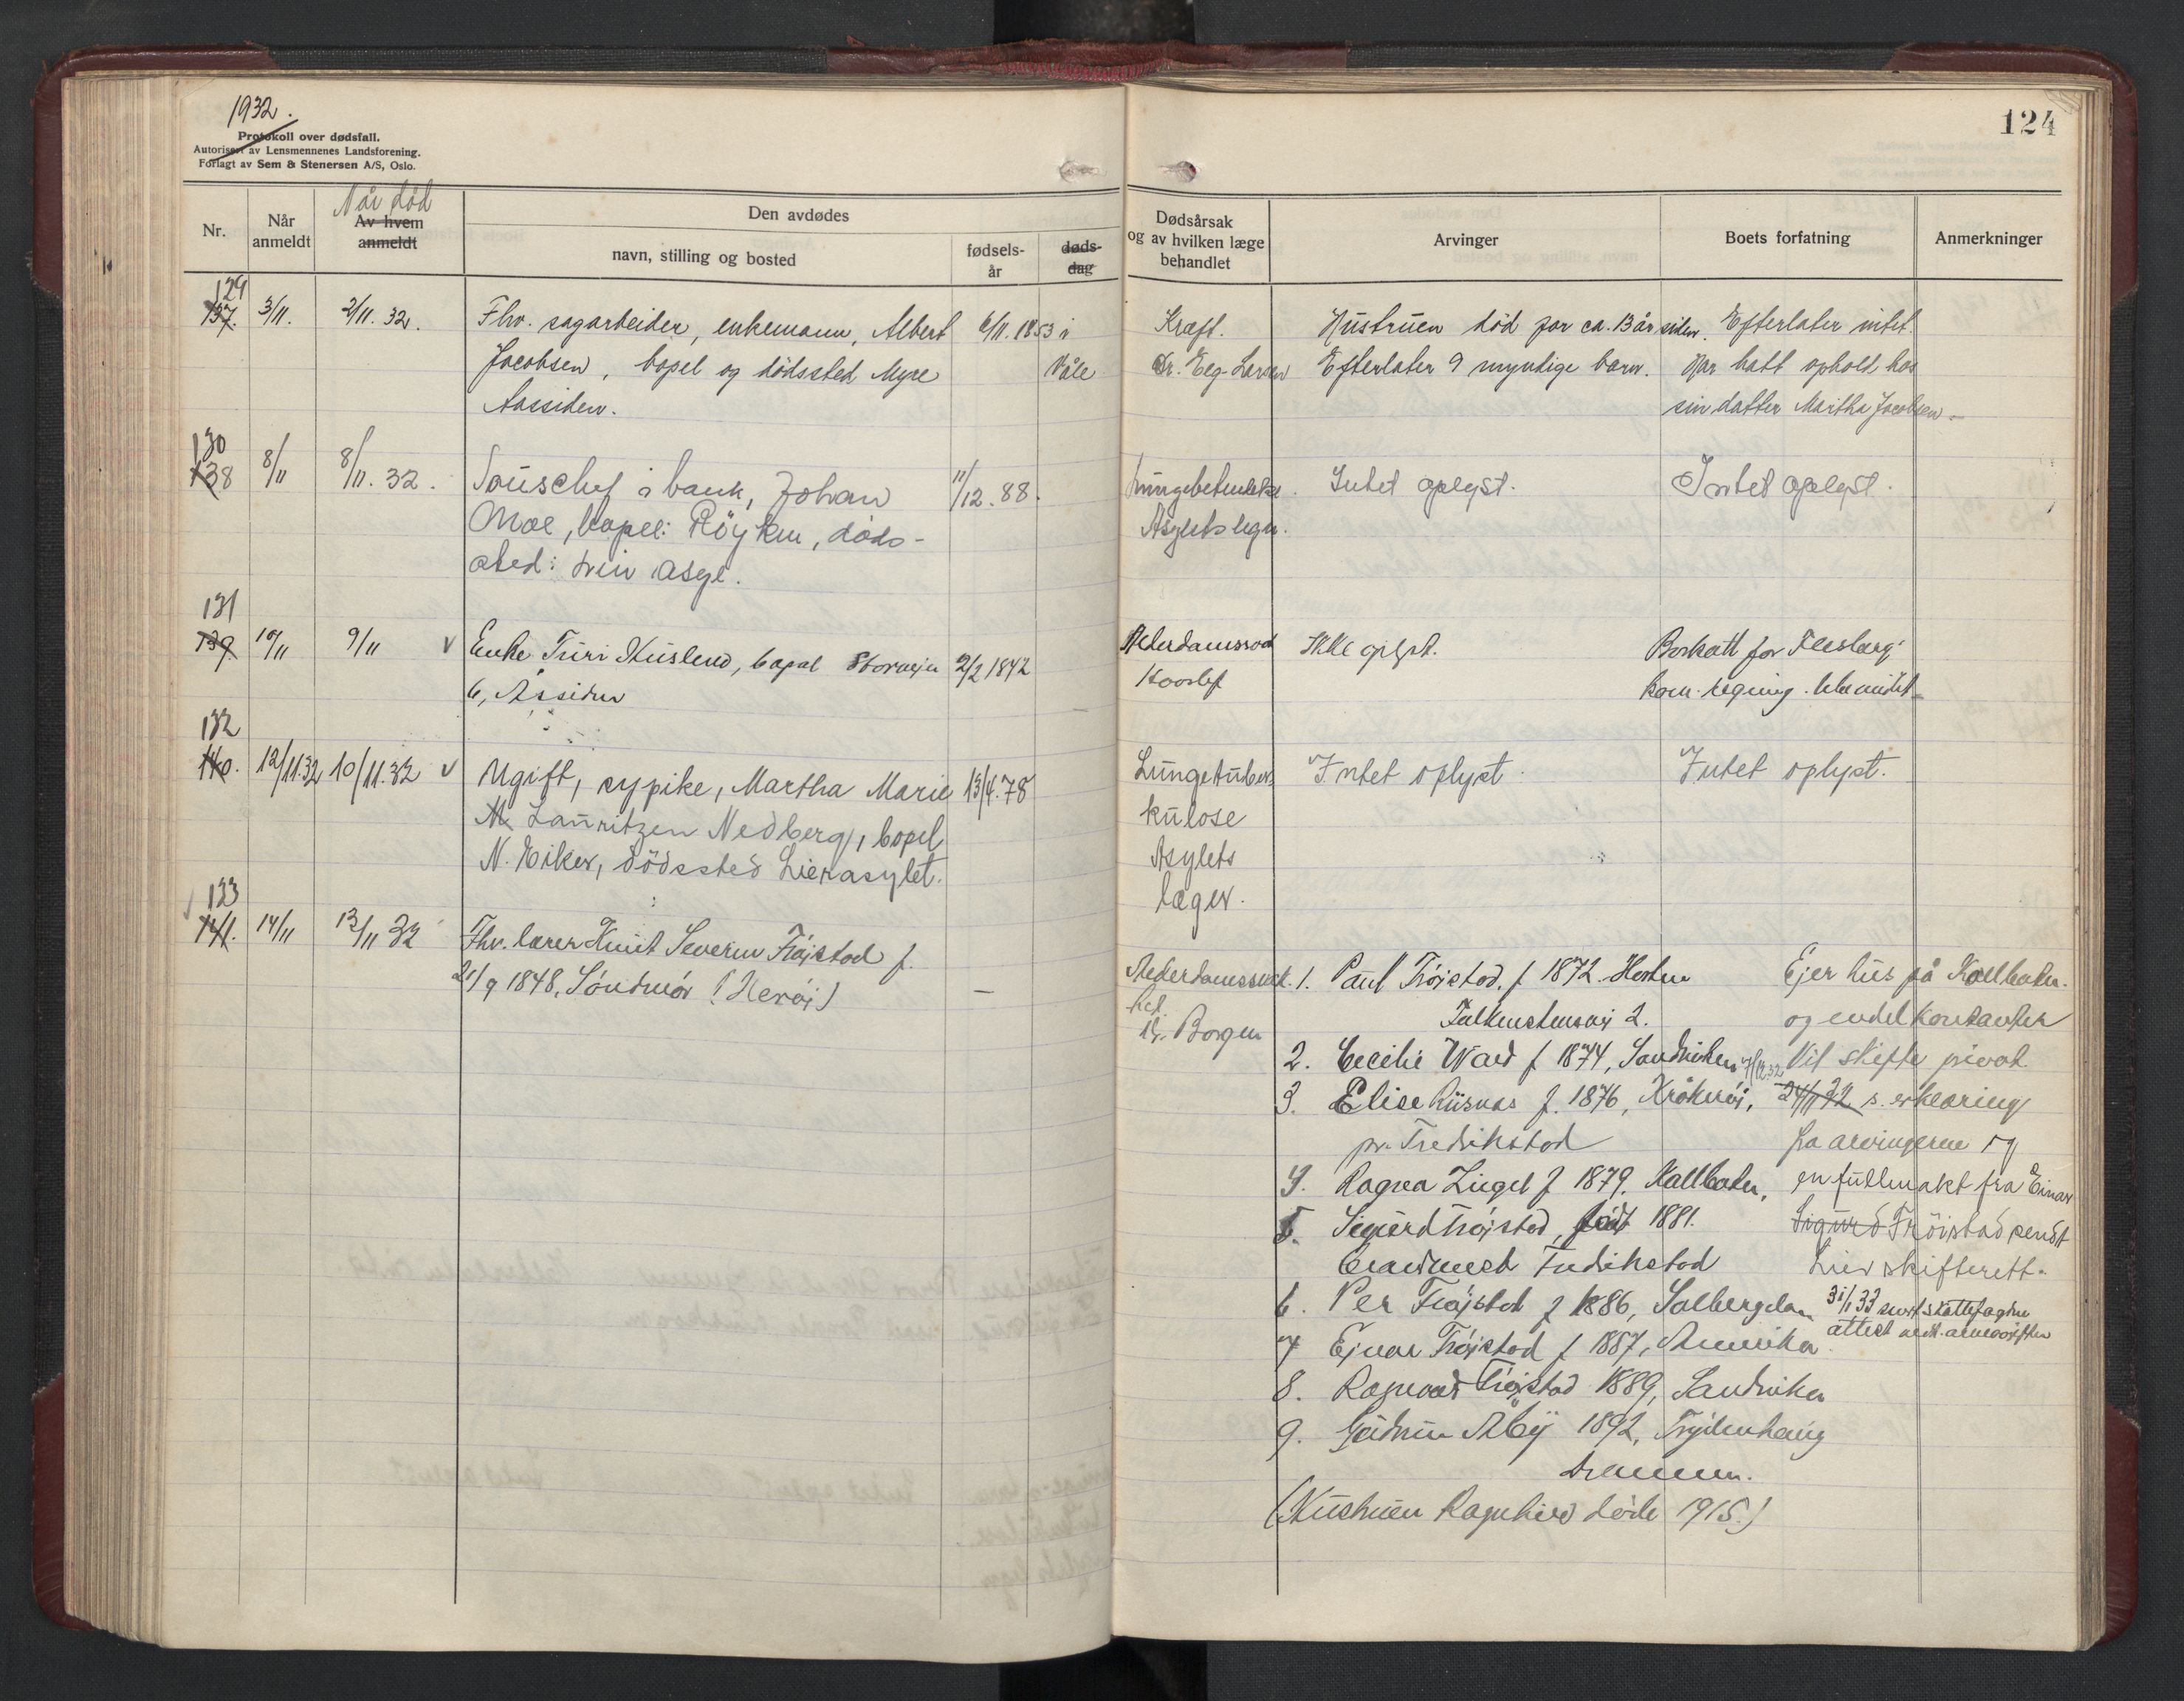 1932.
Protokoll over dødsfall.
Autorisert av Lensmennenes Landsforening.
Forlagt av Sem & Stenersen A/S, Oslo.
124
Nr.
Når anmeldt
Når død
Av hvem anmeldt
Den avdødes
navn, stilling og bosted
fødsels-år
døds-dag
Dødsårsak og av hvilken læge behandlet
Arvinger
Boets forfatning
Anmerkninger
129
137. 3/11. 2/11. 32. Fhv. sagarbeider, enkemann, Albert 6/11. 1853 i
Jacobsen, bopel og dödssted Myre Våle
Aassiden.
Kreft.
Dr. Eeg-Larsen
Hustruen död for ca. 13 år siden.
Efterlater 9 myndige barn.
Efterlater intet.
Har hatt ophold hos
sin datter Martha Jacobsen.
130
138 8/11 8/11. 32. Souschef i bank, Johan 11/12. 88.
Moe, bopel: Röyken, döds-
sted: Lier Asyl.
Lungebetendelse
Asylets leger.
Intet oplyst.
Intet oplyst.
131
139 10/11 9/11 v Enke Turi Huslend, bopel Storveien 2/2 1842
6, Åssiden
Alderdomssvak
Ikke oplyst.
Bortsatt for Flesberg
kom. regning.
132
140. 12/11.32 10/11.32 v Ugift, sypike, Martha Marie 13/4.78
Lauritzen Nedberg, bopel
N. Eiker, dödssted Lierasylet.
Lungetuber
kulose
Asylets
læger.
Intet oplyst.
Intet oplyst.
133
141. 14/11 13/11 32 Fhv. lærer Knut Severin Fröistad f.
21/9 1848, Söndmör (Heröi)
—
Alderdomssvak
het
Dr. Borgen
1. Paul Fröistad, f 1872. Horten
Falkenstensvei 2.
2. Cecilie Ward f 1874, Sandviken
3. Elise Riisnæs f. 1876, Kråkeröi,
pr. Fredrikstad
4. Ragna Zingel f 1879, Hallbaken,
5. Sigurd Fröistad, född 1881.
Fredrikstad
6. Per Fröistad f 1886, Solbergelva
7 Ejnar Fröistad f 1887, Amerika
8. Ragnvald Fröistad 1889, Sandviken
9. Gudrun Åby 1892, Tryllenhaug
Drammen.
(Hustruen Ragnhild döde 1915.)
Ejer hus på Hallbaken.
og endel kontanter
Vil skifte privat.
7/12.32
24/11 32 s. erklæring
fra arvingerne og
en fullmakt fra Einar
Sigurd Fröistad sendt
Lier skifterett.
31/1 33 sendt skattefogdens
attest vedk. arveavgiften